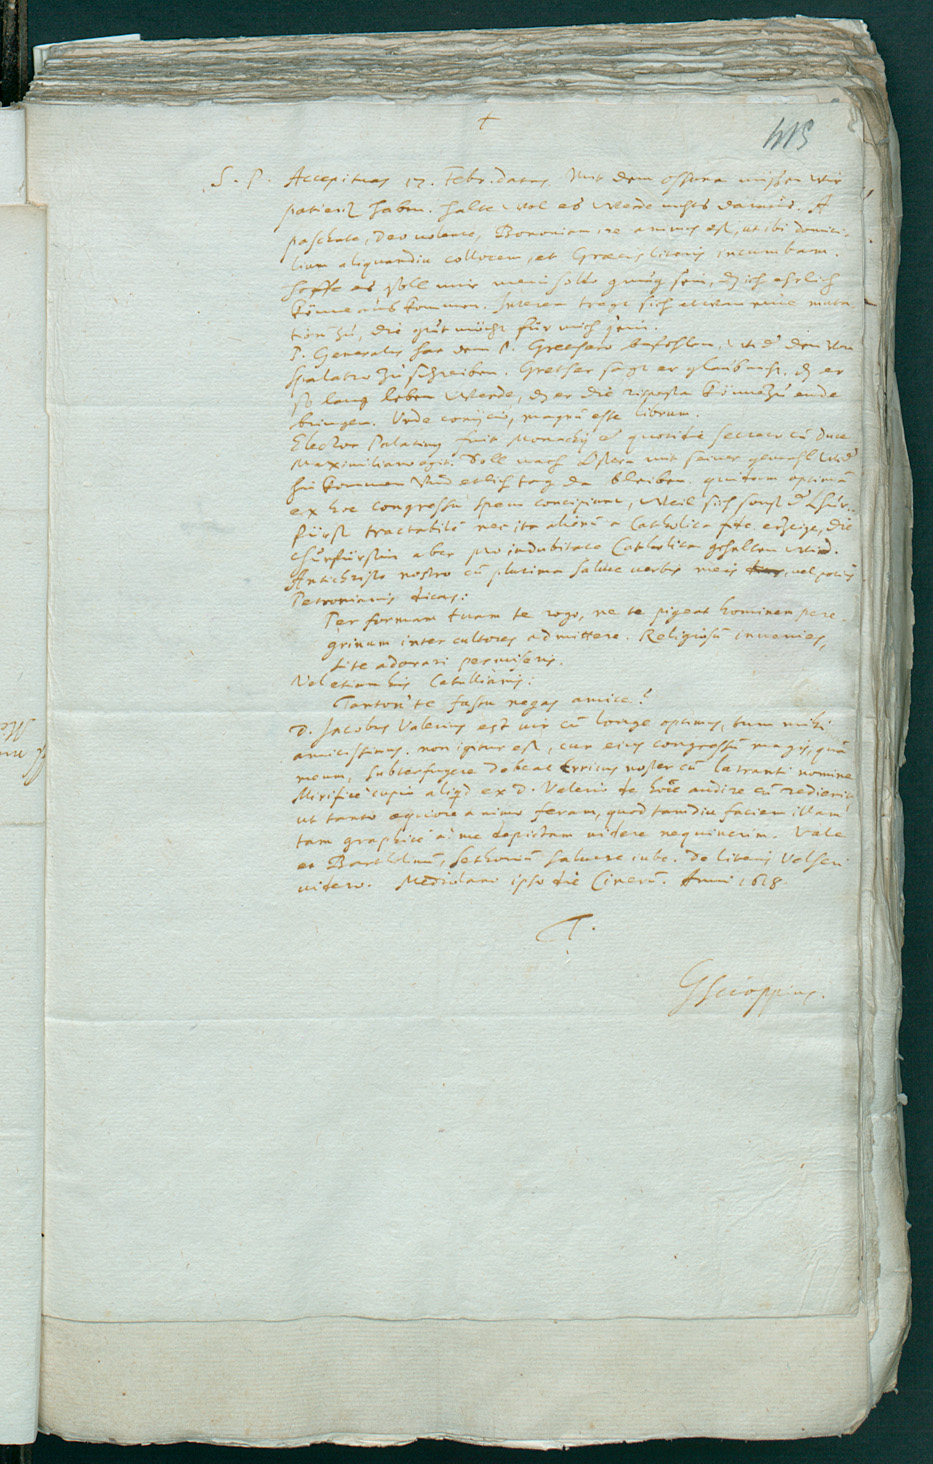 †
413
S. P. Accepi tuas 17. Febr. datas. Mit dem Ossuna müssen wir
patientz haben. halte wol es werde nichts daraus. A
paschate, Deo volente, Bononiam ire animus est, ut ibi domici-
lium aliquandiu collocem, et Græcis literis incumbam.
hoffe es soll mir mein soldo gnug sein, dz ich ehrlich
könne aus kommen. Interea tregt sich etwan eine muta
tion zu, die gut möcht für mich sein.
P. Generalis hat dem P. Gretsero befohlen, wider den von
Spalatro zu schreiben. Gretser sagt er glaub nicht, dz er
so lang leben werde, dz er die risposta könne zu ende
bringen. Unde conijcio, magnū esse librum.
Elector Palatinus fuit Monachij et quotidie secreto cū duce
Maximiliano egit. Soll nach Ostern mit seiner gemahl wider
hin kommen vnd etlich tag da bleiben. quidam optimā
ex hoc congressu spem concipiunt, weil sich sonst der Chur-
fürst tractabilē nec ita alienū a Catholica fide erzeige, die
Churfürstin aber pro indubitate Catholica gehalten wird.
Antichristo nostro cū plurima salute verbis meis, vel potius
Petronianis dicas:
Per formam tuam te rogo, ne te pigeat hominem pere-
grinum inter cultores admittere. Religiosū invenies,
si te adorari permiseris.
Vel etiam his Catullianis:
Tanton' te fastu negas amice?
D. Jacobus Valerius est vir cū longe optimus, tum mihi
amicissimus. non igitur est, cur eius congressū magis, quā
meum, subterfugere debeat Erricus noster cū latranti nomine
Mirifice cupio aliqd ex D. Valerio de hoc audire cū redierit
ut tanto æquiore animo feram, quod tamdiu faciem illam
tam graphice a me depictam videre nequiverim. Vale
et Bartholinū, Sethonium salvere iube. De literis Velseri
videro. Mediolani ipso die Cinerū. Anni 1618.
T.
GScioppius.